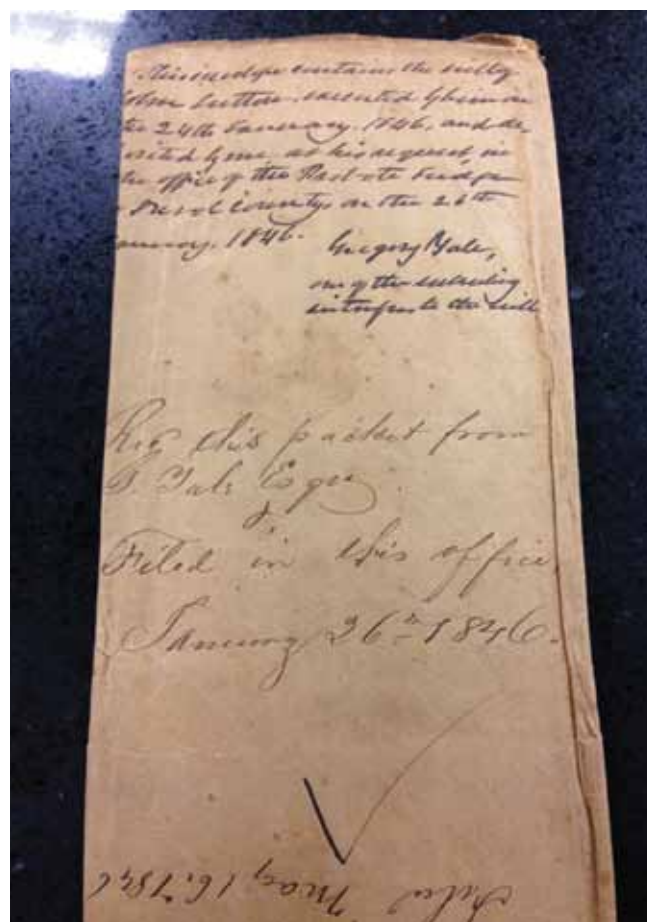 This envelope contains the will of
John Sutton, executed by him on
the 24th January, 1846, and de,
osited by me, at his request, in
the office of the Probate Judge
Duval County, on the 26th
anuary, 1846.
Gregory Yale,
one of the subscribing
witnesses to the will
this packet from
G. Yale Esqr
&
Filed in this office
January 26th 1846.
Filed May 16, 1846